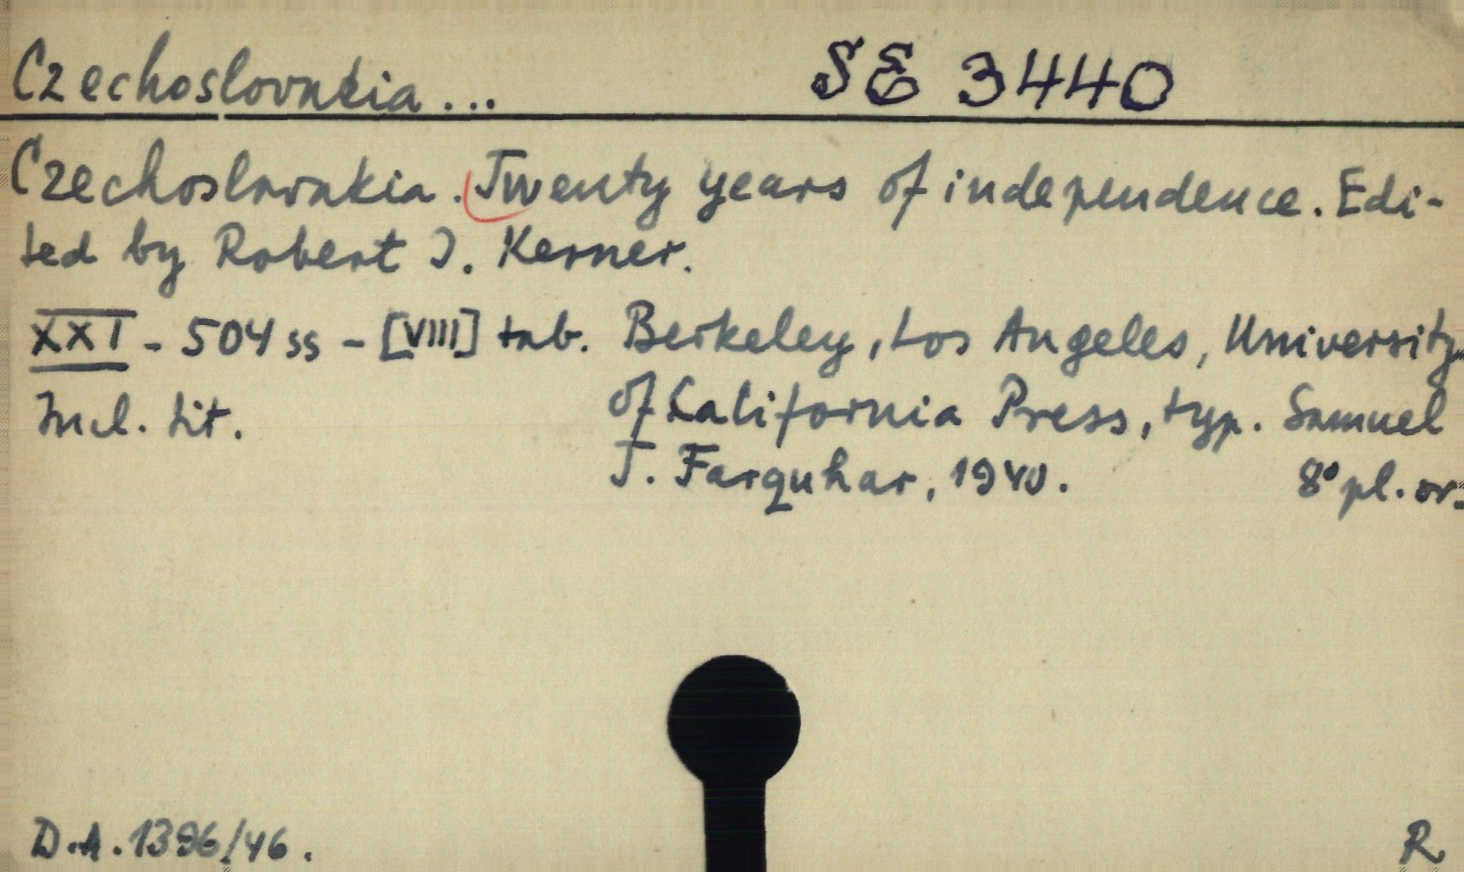 Czechoslovakia ... SE 3440
Czechoslovakia. Twenty years of independence. Edi-
ted by Robert J. Kerner.
XXI - 504 ss - [VIII] tab. Berkeley, Los Angeles, University
Incl. lit. of California Press, typ. Samuel
T. Farquhar, 1940. 8° pl. or.
D.A. 1396/46. R